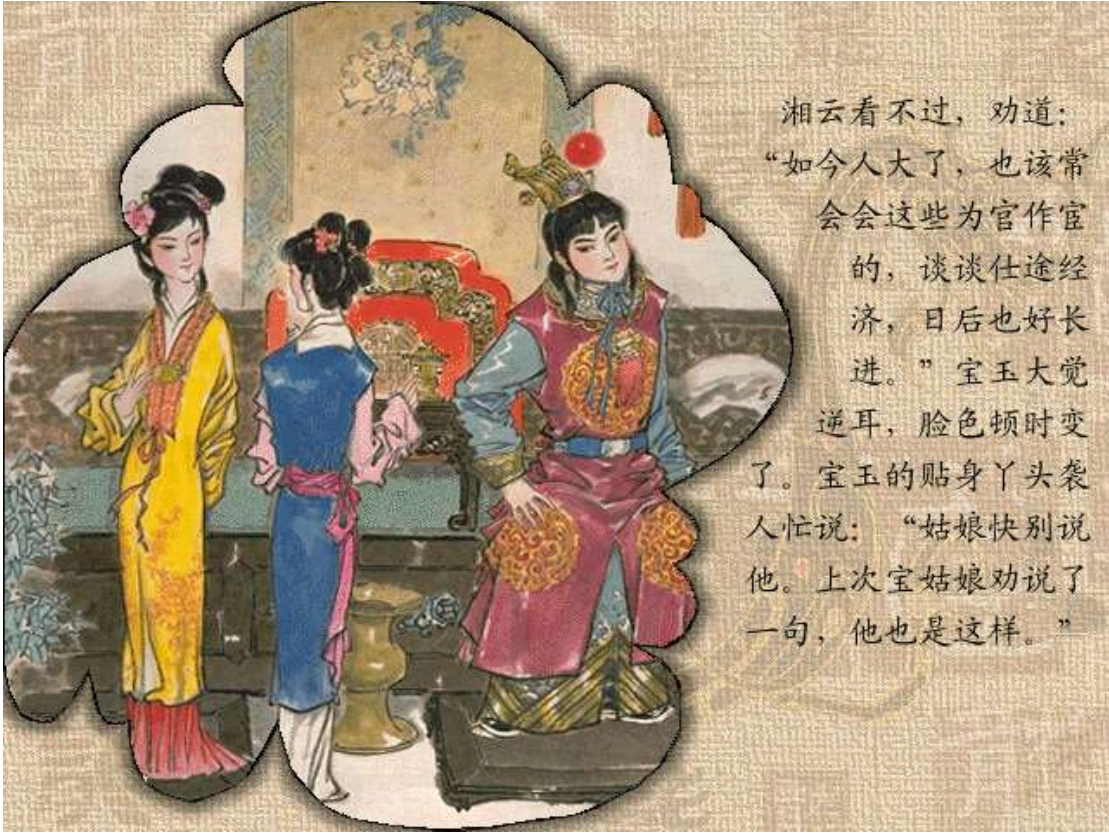 湘云看不过，劝道：
“如今人大了，也该常
会会这些为官作宦
的，谈谈仕途经
济，日后也好长
进。”宝玉大觉
逆耳，脸色顿时变
了。宝玉的贴身丫头袭
人忙说：“姑娘快别说
他。上次宝姑娘劝说了
一句，他也是这样。”